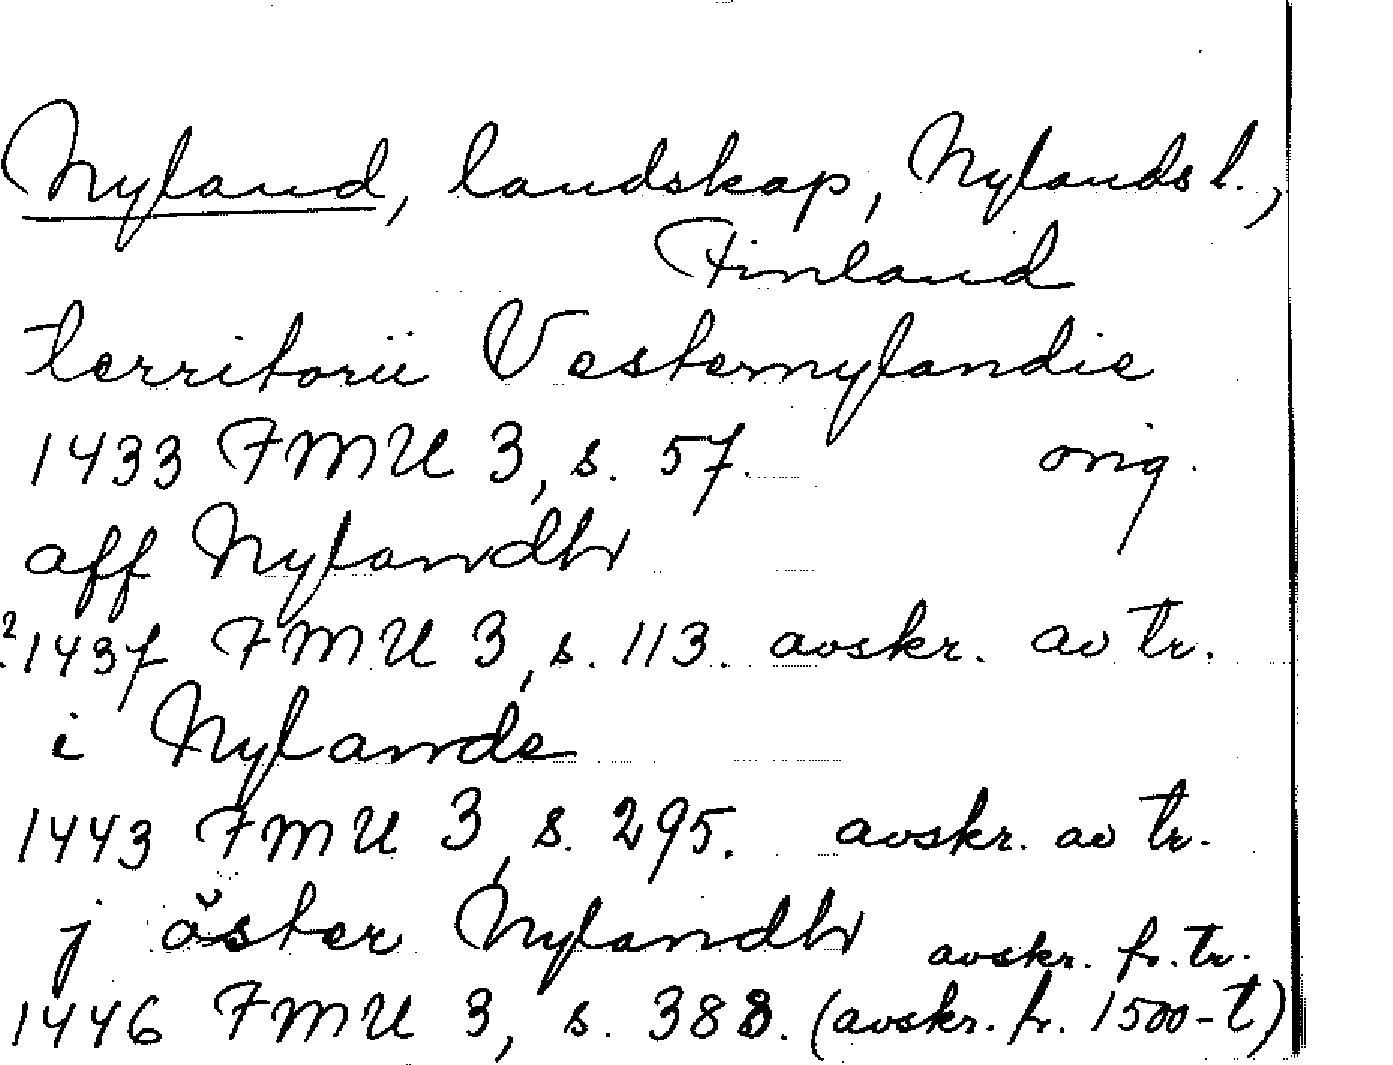 Nyland, landskap, Nylands l.,
Finland
territorii Vesternylandie
1433 FMU 3, s. 57. orig.
aff Nylandh
1437 FMU 3, s. 113. avskr. av tr.
i Nylande
1443 FMU 3, s. 295. avskr. av tr.
j öster Nylandh avskr. fr. tr.
1446 FMU 3, s. 388. (avskr. fr. 1500-t)